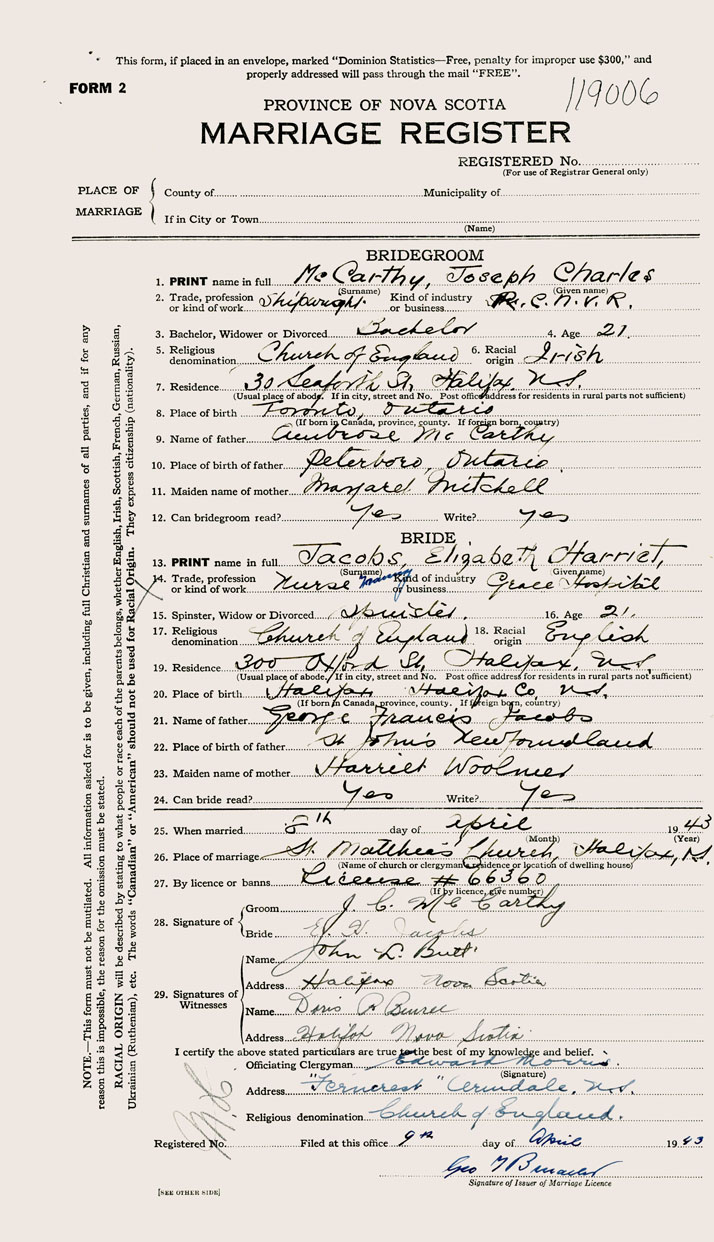 This form, if placed in an envelope, marked "Dominion Statistics—Free, penalty for improper use $300," and
properly addressed will pass through the mail "FREE".
FORM 2
119006
PROVINCE OF NOVA SCOTIA
MARRIAGE REGISTER
REGISTERED No.
(For use of Registrar General only)
PLACE OF MARRIAGE
County of Municipality of
If in City or Town
(Name)
BRIDEGROOM
1. PRINT name in full McCarthy, Joseph Charles
(Surname) (Given name)
2. Trade, profession or kind of work Shipwright Kind of industry or business R.C.N.V.R.
3. Bachelor, Widower or Divorced Bachelor 4. Age 21
5. Religious denomination Church of England 6. Racial origin Irish
7. Residence 30 Seaforth St, Halifax. N.S.
(Usual place of abode. If in city, street and No. Post office address for residents in rural parts not sufficient)
8. Place of birth Toronto, Ontario
(If born in Canada, province, county. If foreign born, country)
9. Name of father Ambrose McCarthy
10. Place of birth of father Peterboro, Ontario
11. Maiden name of mother Margaret Mitchell
12. Can bridegroom read? Yes Write? Yes
BRIDE
13. PRINT name in full Jacobs, Elizabeth Harriet,
(Surname) (Given name)
14. Trade, profession or kind of work Nurse Kind of industry or business Grace Hospital
15. Spinster, Widow or Divorced Spinster. 16. Age 21.
17. Religious denomination Church of England 18. Racial origin English
19. Residence 300 Oxford St, Halifax, N.S.
(Usual place of abode. If in city, street and No. Post office address for residents in rural parts not sufficient)
20. Place of birth Halifax Halifax Co, N.S.
(If born in Canada, province, county. If foreign born, country)
21. Name of father George Francis Jacobs
22. Place of birth of father St John's Newfoundland
23. Maiden name of mother Harriet Woolmer
24. Can bride read? Yes Write? Yes
25. When married 8th day of April 1943
(Month) (Year)
26. Place of marriage St. Matthias Church, Halifax, N.S.
(Name of church or clergyman's residence or location of dwelling house)
27. By licence or banns License # 66360
(If by licence, give number)
28. Signature of
Groom J. C. McCarthy
Bride E. H. Jacobs
29. Signatures of Witnesses
Name John L. Butt
Address Halifax Nova Scotia
Name Doris
Address Halifax Nova Scotia
I certify the above stated particulars are true to the best of my knowledge and belief.
Officiating Clergyman Edward Morris.
(Signature)
Address "Ferncrest" Armdale, N.S.
Religious denomination Church of England.
Registered No. Filed at this office 9th day of April 1943
Geo
Signature of Issuer of Marriage Licence
[SEE OTHER SIDE]
NOTE.—This form must not be mutilated. All information asked for is to be given, including full Christian and surnames of all parties, and if for any
reason this is impossible, the reason for the omission must be stated.
RACIAL ORIGIN will be described by stating to what people or race each of the parents belongs, whether English, Irish, Scottish, French, German, Russian,
Ukrainian (Ruthenian), etc. The words "Canadian" or "American" should not be used for Racial Origin. They express citizenship (nationality).